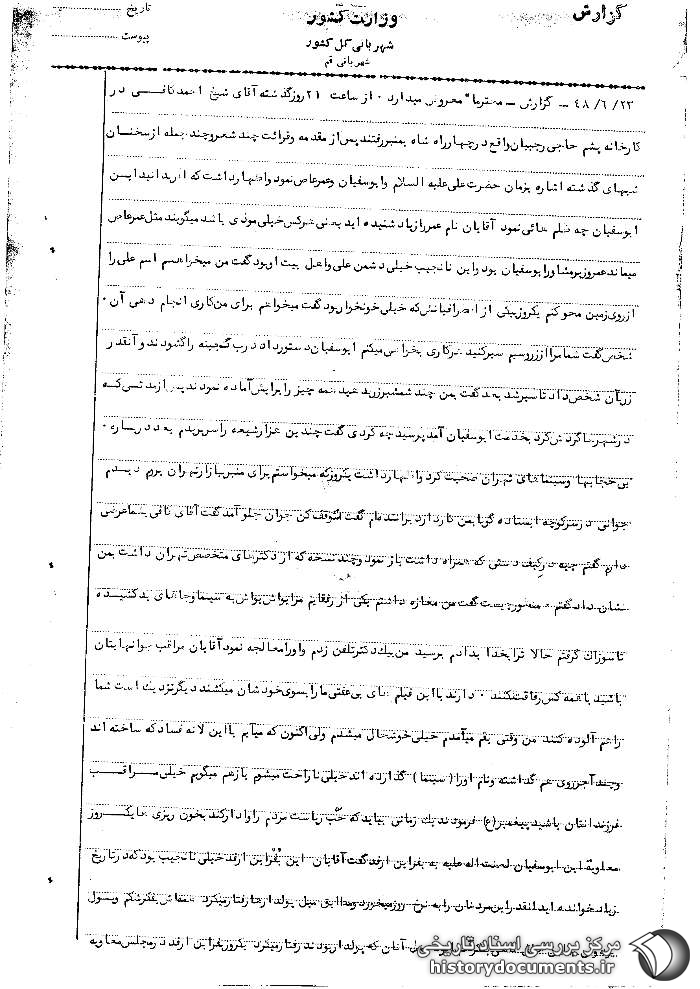 گزارش
وزارت کشور
شهربانی کل کشور
شهربانی قم
تاریخ
پیوست
۴۸/۶/۲۳ – گزارش – محترما" معروض میدارد ۰ از ساعت ۲۱ روز گذشته آقای شیخ احمد کافی در
کارخانه پشم حاجی رجبیان واقع در چهارراه شاه بمنبر رفتند پس از مقدمه و قرائت چند شعر و چند جمله از سخنان
شبهای گذشته اشاره بزمان حضرت علی علیه السلام و ابوسفیان و عمرعاص نمود و اظهار داشت که آقریدانید این
ابوسفیان چه ظلم هائی نمود آقایان نام عمر را زیاد شنیده اید یعنی هرکس خیلی موذی باشد میگویند مثل عمرعاص
میماند عمروزیر مشاور ابوسفیان بود و این نانجیب خیلی دشمن علی و اهل بیت او بود گفت من میخواهم اسم علی را
از روی زمین محو کنم یکروز یکی از اطرافیانش که خیلی خونخوار بود گفت میخواهم برای من کاری انجام دهی آن
شخص گفت شما مرا از زر و سیم سیر کنید هرکاری بخواهی میکنم ابوسفیان دستور داد درب گنجینه را گشودند و آنقدر
زر بآن شخص داد تا سیر شد بعد گفت بمن چند شمشیرزن بدهید همه چیز را برایش آماده نمودند پس از مدتی که
در شهرها گردش کرد بخدمت ابوسفیان آمد پرسید چه کردی گفت چندین هزار شیعه را سر بریدم بعد درباره ۰
بی حجابیها و سینماهای تهران صحبت کرد و اظهار داشت یکروز که میخواستم برای منبر ببازار تهران بروم دیدم
جوانی در سر کوچه ایستاده گویا بمن کار دارد براننده ام گفت متوقف کن جوان جلو آمد گفت آقای کافی بشما عرضی
دارم گفتم چیه در کیف دستی که همراه داشت باز نمود و چند نسخه که از دکترهای متخصص تهران داشت بمن
نشان داد گفتم منظور چیست گفت من مغازه داشتم یکی از رفقایم مرا یواش یواش به سینما و جاهای بد کشیده
تا سوزاک گرفتم حالا ترا بخدا بدادم برسید من بیک دکتر تلفن زدم و او را معالجه نمود آقایان مراقب جوانهایتان
باشید با همه کس رفاقت نکنند ۰ دارند با این فیلم های بی عفتی ما را بسوی خودشان میکشند دیگر نزدیک است شما
را هم آلوده کنند من وقتی بقم میآمدم خیلی خوشحال میشدم ولی اکنون که میآیم با این لانه فساد که ساخته اند
و چند آجر روی هم گذاشته و نام او را ( سینما ) گذارده اند خیلی ناراحت میشوم باز هم میگویم خیلی مراقب
فرزندانتان باشید پیغمبر(ع) فرمودند یک زمانی بیاید که حب ریاست مردم را وادار کند بخون ریزی ما یکروز
معاویه ابن ابوسفیان لعنت اله علیه به بقراین ارقد گفت آقایان این بقراین ارقد خیلی نانجیب بود که در تاریخ
زیاد خوانده اید آنقدر این مرد نان را به نرخ روز میخورد و مطابق میل پولدارها رفتار میکرد همه اش بفکر شکم و پول
آنان که پولدار بودند رفتار میکرد یکروز بقراین ارقد در مجلس معاویه
مرکز بررسی اسناد تاریخی
historydocuments.ir